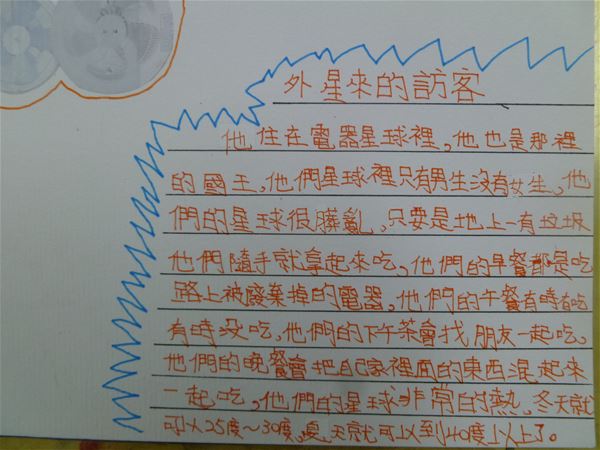 外星來的訪客
他住在電器星球裡,他也是那裡
的國王,他們星球裡只有男生沒有女生,他
們的星球很髒亂,只要是地上一有垃圾
他們隨手就拿起來吃,他們的早餐都是吃
路上被廢棄掉的電器,他們的午餐有時有吃
有時沒吃,他們的下午茶會找朋友一起吃。
他們的晚餐會把自己家裡面的東西混起來
一起吃,他們的星球非常的熱,冬天就
可以25度~30度,夏天就可以到40度以上了。